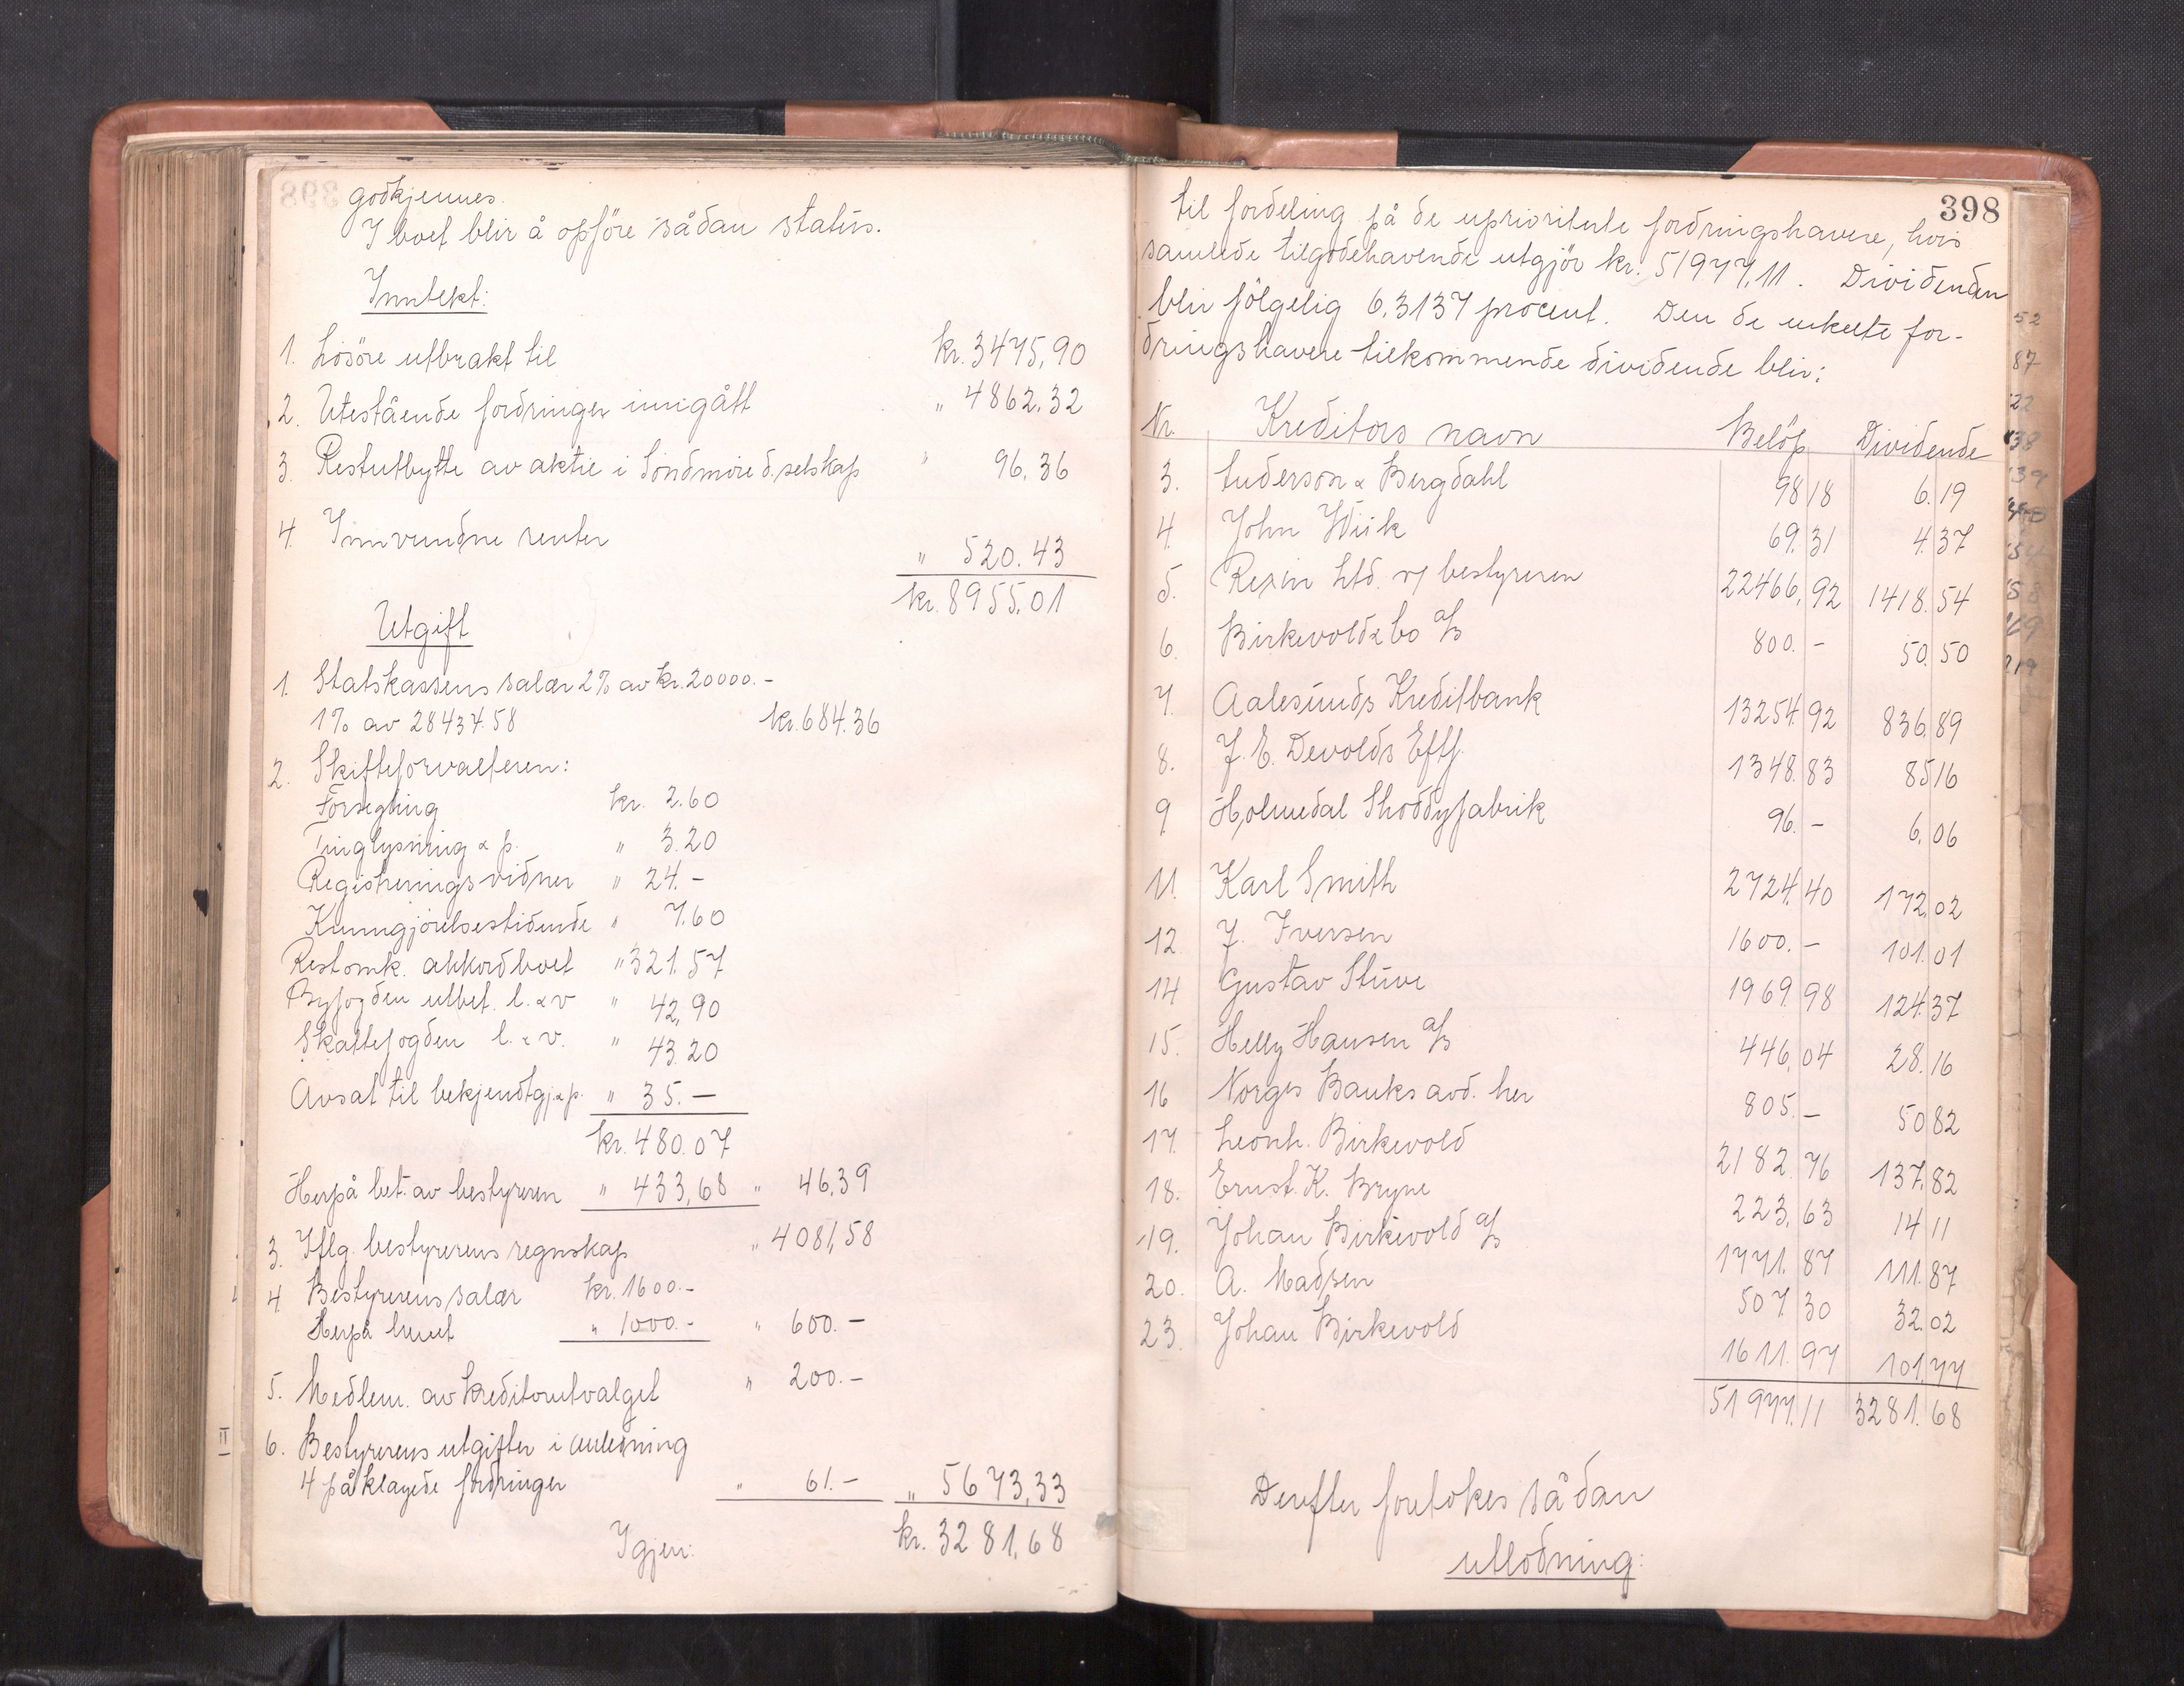 godkjennes.
I boet blir å opføre sådan status.
Inntekt:
1. Løsöre utbrakt til kr. 3475,90
2. Utestående fordringer inngått " 4862.32
3. Restutbytte av aktie i Söndmöre d. selskap " 96.36
4. Innvundne renter " 520.43
kr. 8955.01
Utgift
1. Statskassens salær 2% av kr. 20000.-
1% av 28434.58 kr. 684.36
2. Skifteforvalteren:
Forsegling kr. 2.60
Tinglysning & p. " 3.20
Registreringsvidner " 24.-
Kunngjörelsestidende " 7.60
Restomk. akkordboet " 321.57
Byfogden utbet. l. & v " 42,90
Skattefogden l. & v. " 43.20
Avsat til bekjendtgj. & p. " 35.-
kr. 480.07
Herpå bet. av bestyreren " 433,68 " 46,39
3. Iflg. bestyrerens regnskap " 4081,58
4. Bestyrerens salær kr. 1600.-
Herpå hevet " 1000.- " 600.-
5. Medlem. av kreditorutvalget " 200.-
6. Bestyrerens utgifter i anledning
4 påklagede fordringer " 61.- " 5673,33
Igjen: kr. 3281,68
398
til fordeling på de uprioriterte fordringshavere, hvis
samlede tilgodehavende utgjör kr. 51977,11. Dividenden
blir fölgelig 6.3137 procent. Den de enkelte for-
dringshavere tilkommende dividende blir:
Nr. Kreditors navn Belöp Dividende
3. Luderson & Bergdahl 98 18 6.19
4. John Wiik 69.31 4.37
5. Rexin Ltd. v/ bestyreren 22466,92 1418.54
6. Birkevold & Co a/s 800.- 50.50
7. Aalesunds Kreditbank 13254.92 836.89
8. J. E. Devolds Eftf. 1348.83 85 16
9. Holmedal Shoddyfabrik 96.- 6.06
11. Karl Smith 2724.40 172.02
12. J. Iversen 1600.- 101.01
14 Gustav Stüwe 1969.98 124.37
15. Helly Hansen a/s 446,04 28.16
16 Norges Banks avd. her 805.- 50 82
17. Leonh. Birkevold 2182.76 137.82
18. Ernst. K. Bryne 223,63 14 11
19. Johan Birkevold a/s 1771.87 111.87
20. A. Madsen 507 30 32.02
23. Johan Birkevold 1611.97 101.77
51977.11 3281.68
Derefter foretokes sådan
utlodning: